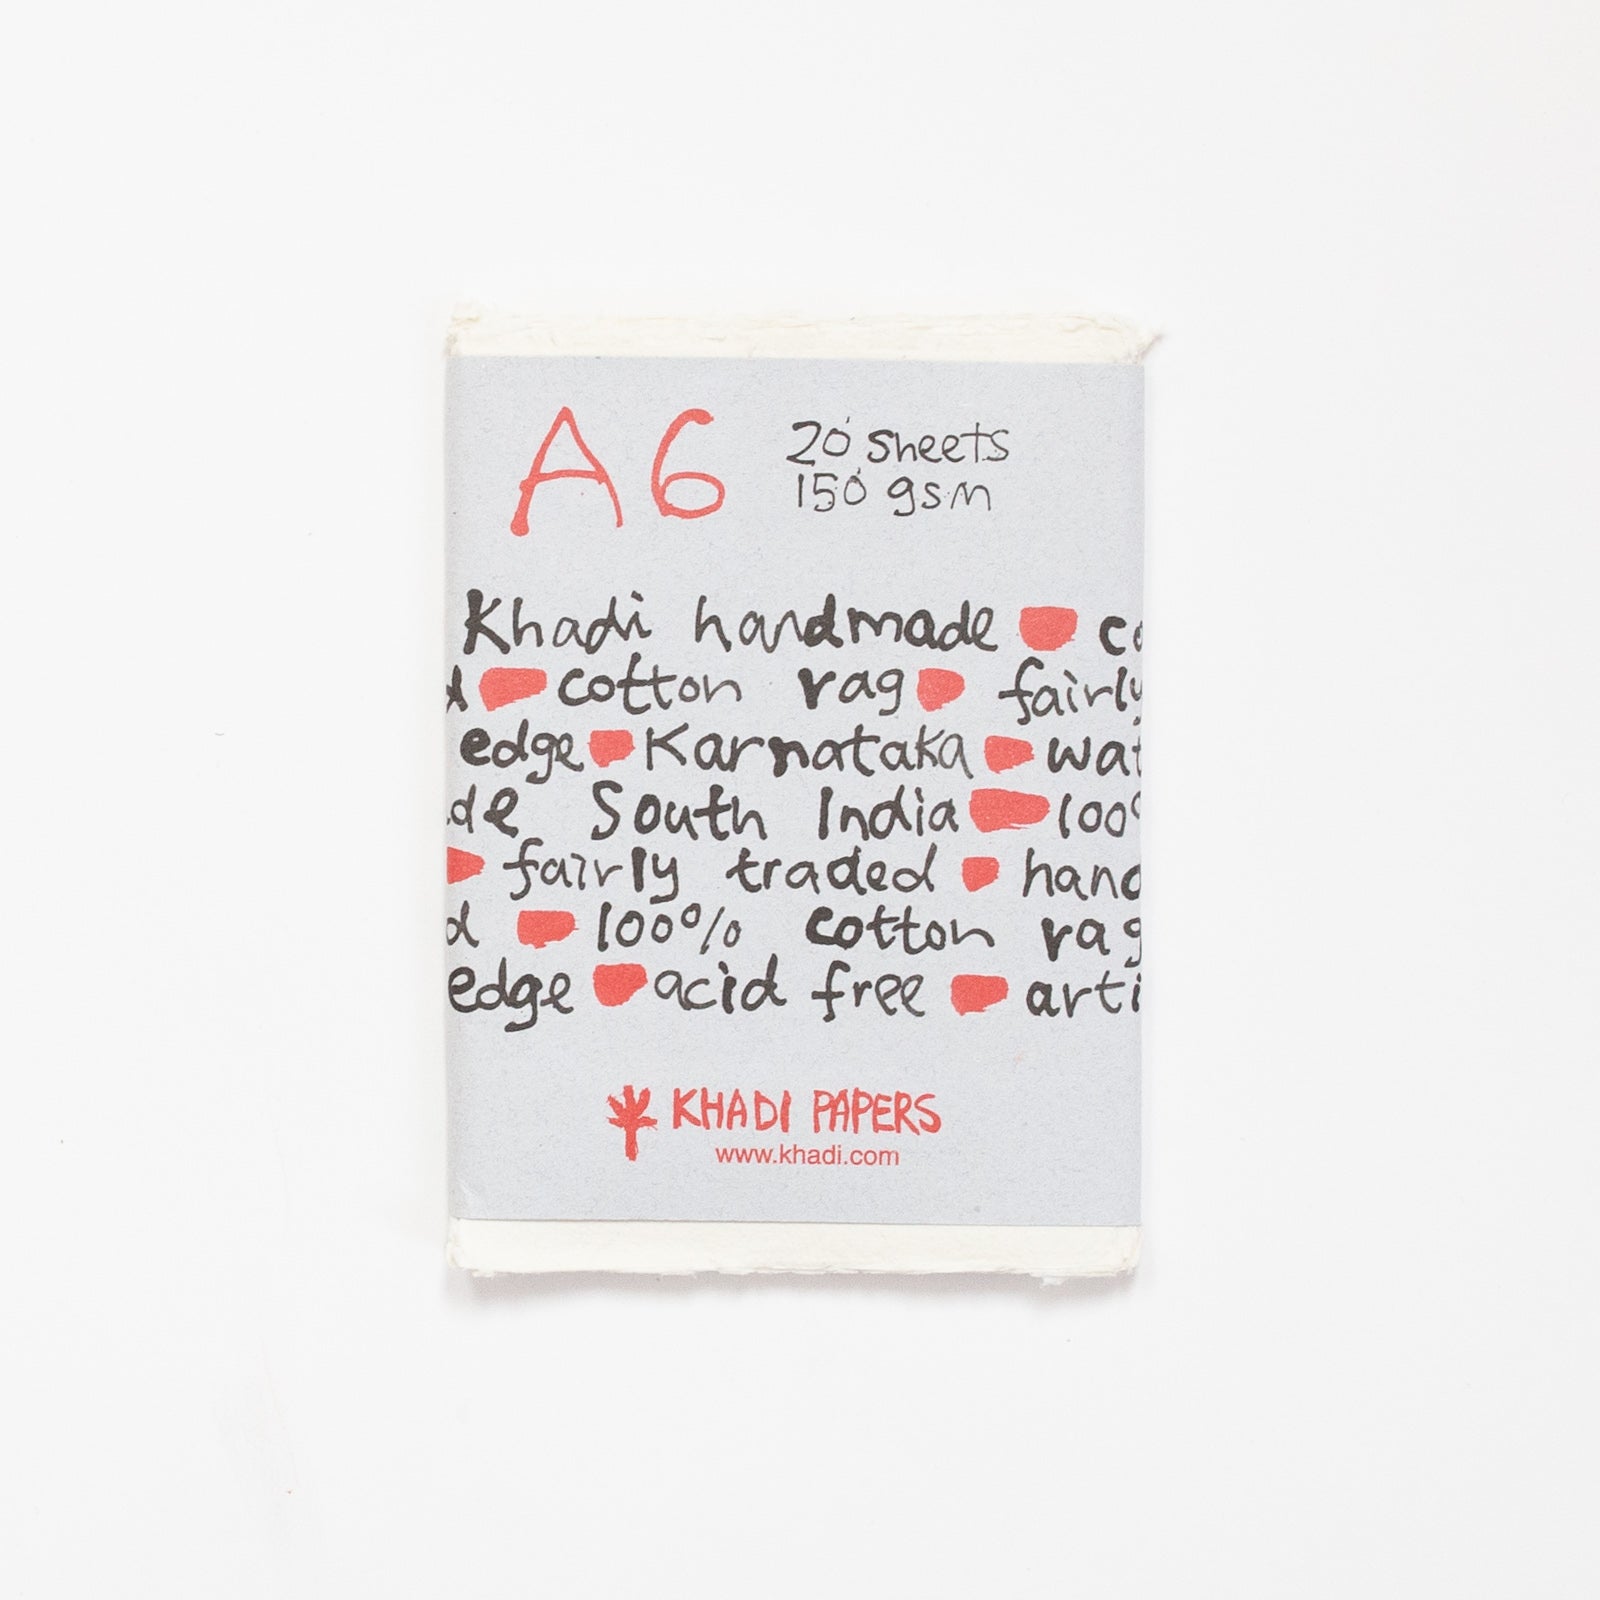 A6
20 sheets
150 gsm
Khadi handmade co
d cotton rag fairly
edge Karnataka wat
de South India 100
fairly traded hand
d 100% cotton rag
edge acid free arti
KHADI PAPERS
www.khadi.com